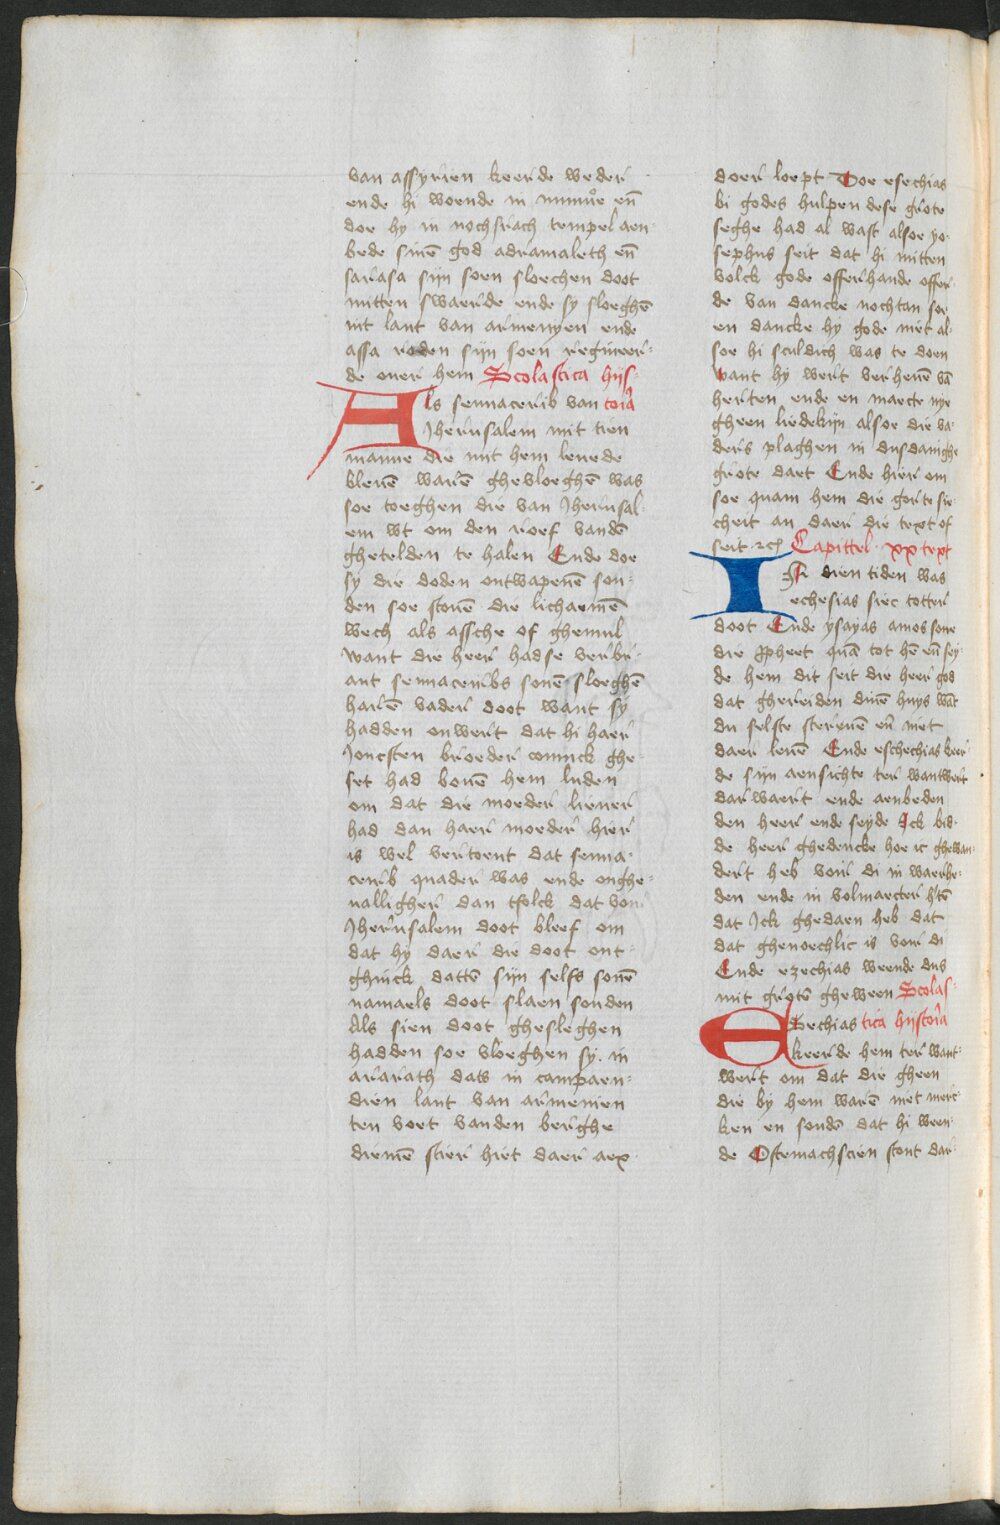 van assyrien keerde weder
ende hi woende in niniue en̄
doe hy in nochsrach tempel aen
bede sinē god adramaleth en̄
sarasa sijn soen sloechen doot
mitten swaerde ende sy sloeghē
int lant van armenyen ende
assa roden sijn soen regineer-
de ouer hem Scolastica hijs-
Als sennacerib van toria
Jherusalem mit tien
manne die mit hem leuede
bleuē warē ghevloeghē was
soe toeghen die van Jherusal-
em wt om den roef vandē
ghetelden te halen Ende doe
sy die doden ontwapenē son-
den soe stouē die lichaemē
wech als assche of ghemul
want die heer hadse verbr-
ant sennaceribs sonē sloeghē
harē vader doot want sy
hadden onwert dat hi haer
Joncsten broeder coninck ghe-
set had bouē hem luden
om dat die moeder lieuer
had dan haer moeder hier
is wel vertoent dat senna-
cerib quader was ende onghe-
valligher dan tfolck dat voir
Jherusalem doot bleef om
dat hy daer die doot ont-
ghinck dattē sijn selfs sonē
namaels doot slaen souden
Als sien doot ghesleghen
hadden soe vloeghen sy in
ararath dats in campaen-
dien lant van armenien
ten voet vanden berghe
diemē stier hiet daer aex
doer loept Doe esechias
bi godes hulpen dese grote
seghe had al wast alsoe yo-
sephus seit dat hi mitten
volck gode offerhande offer-
de van dancke nochtan soe
en dancke hy gode niet al-
soe hi sculdich was te doen
want hy wert verheuē vā
herten ende en maecte nye
gheen liedekijn alsoe die va-
ders plaghen in dusdanighe
grote daet Ende hier om
soe quam hem die grote sie-
cheit an daer die text of
seit Capittel xx text
In dien tiden was
echesias siec totter
doot Ende ysayas amos sone
die pheet quā tot hē en̄ sey-
de hem dit seit die heer god
dat ghereiden dinē huys wāt
du selste steruenē en̄ niet
daer leuē Ende eschechias keer-
de sijn aensichte ter wantwert
darwaert ende aenbeden
den heer ende seyde Ick bid-
de heer ghedencke hoe ic ghewan-
dert heb voir di in waerhe-
den ende in volmaecter h'tē
dat Ick ghedaen heb dat
dat ghenoechlic is voir di
Ende ezechias weende dus
mit grotē gheween Scolas-
Esechias tica hijstoria
keerde hem ter want-
wert om dat die gheen
die by hem warē niet merc-
ken en soudē dat hi ween-
de Ostemachscien stont dar-